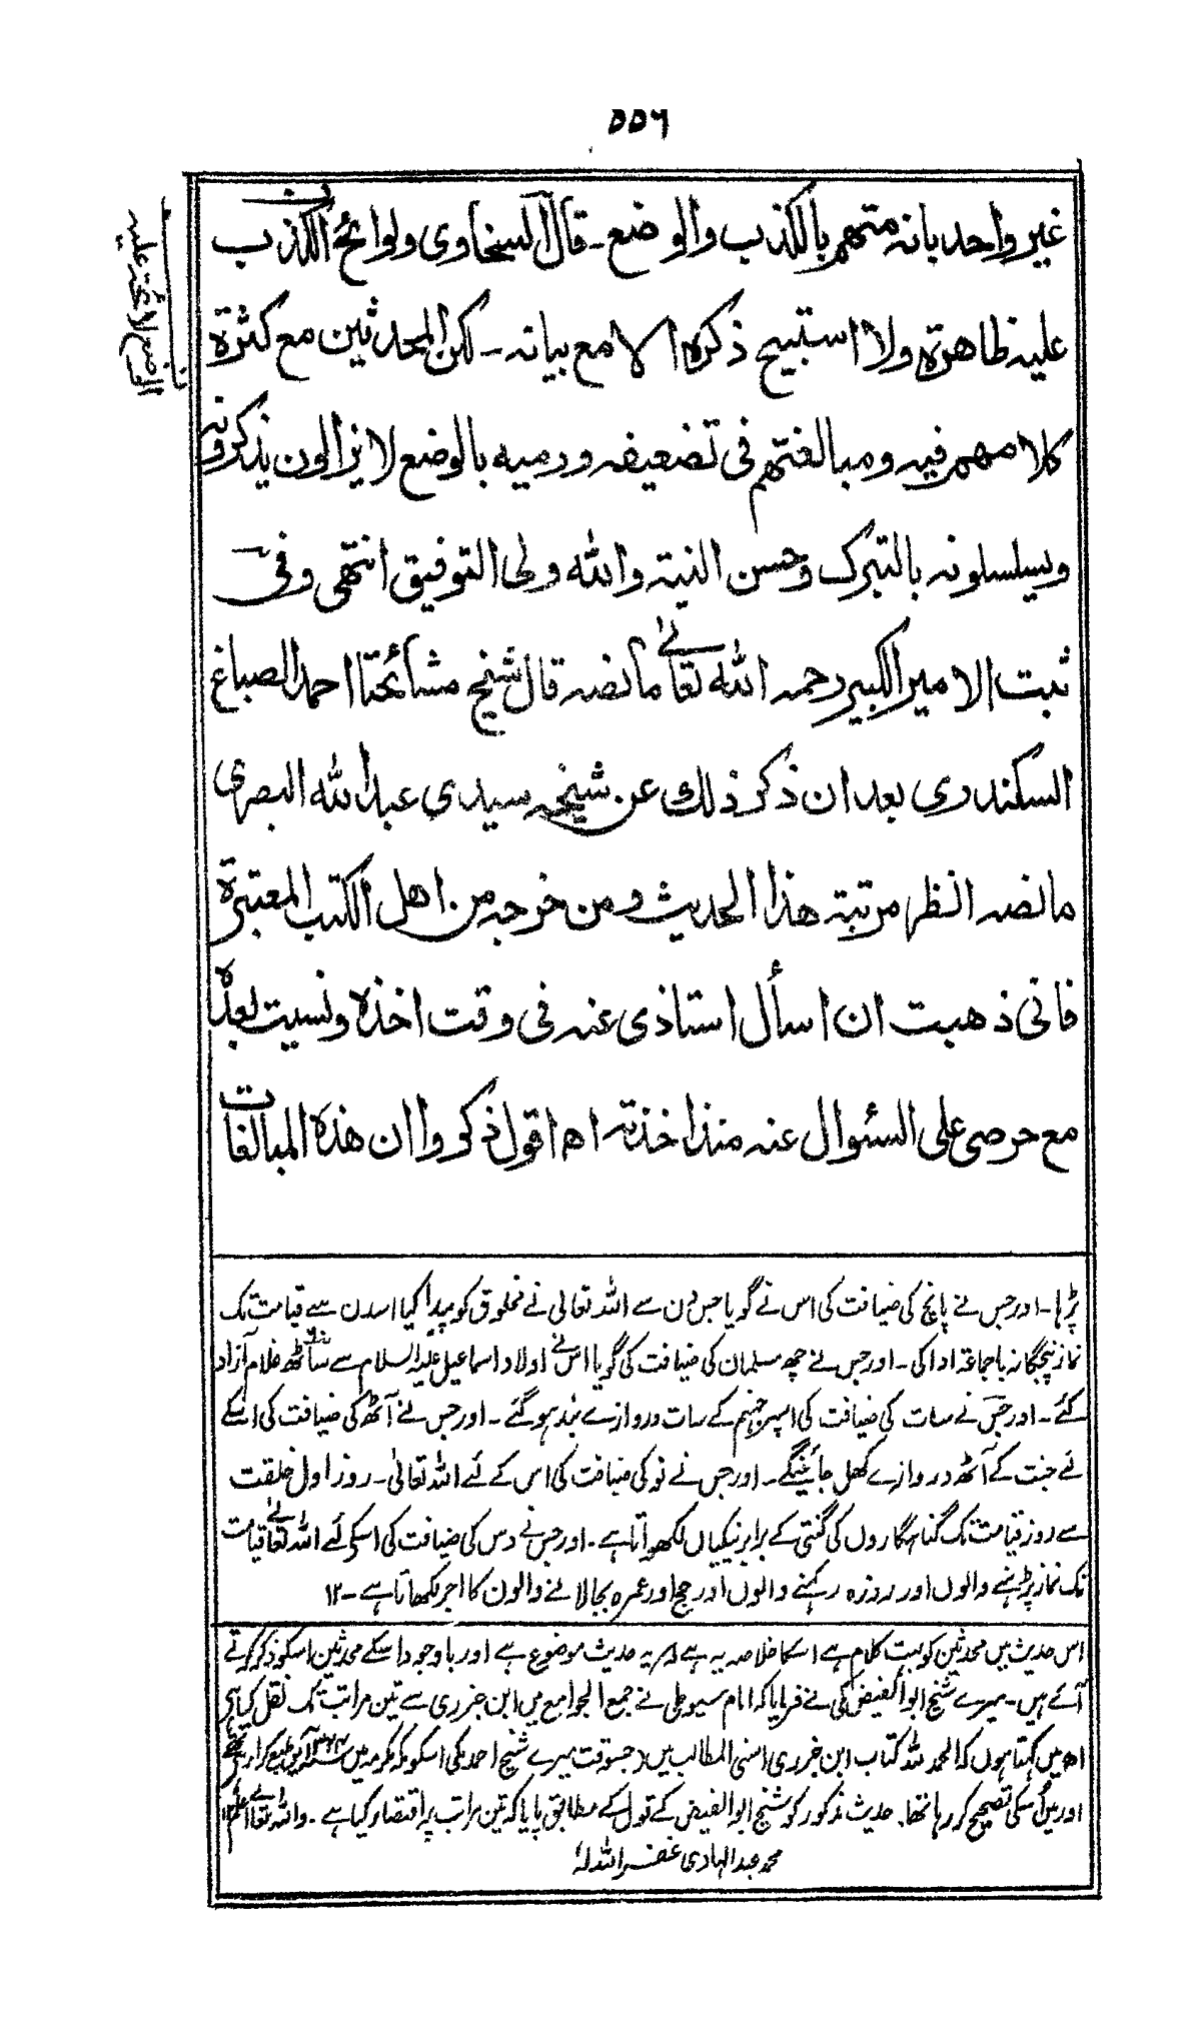 ۵۵۶
غير واحد بانه متهم بالكذب والوضع ـ قال السخاوى ولوائح الكذب
عليه ظاهرة ولا استبيح ذكره الا مع بيانه ـ لكن المحدثين مع كثرة
كلامهم فيه ومبالغتهم فى تضعيفه ورميه بالوضع لا يزالون يذكرونه
ويسلسلونه بالتبرك وحسن النية والله ولى التوفيق انتهى وفى
ثبت الامير الكبير رحمه الله تعالى ما نصه قال شيخ مشائخنا احمد الصباغ
السكندرى بعد ان ذكر ذلك عن شيخه سيدى عبد الله البصرى
ما نصه انظر مرتبة هذا الحديث ومن خرجه من اهل الكتب المعتبرة
فانى ذهبت ان اسأل استاذى عنه فى وقت اخذه ونسيت بعده
مع حرصى على السئوال عنه منذ اخذته اھ اقول ذكروا ان هذه المبالغات
الوضع لائحة عليه
پڑہا ـ اور جس نے پانچ کی ضیافت کی اس نے گویا جس دن سے اللہ تعالی نے مخلوق کو پیدا کیا اسدن سے قیامت تک
نماز پنجگانہ باجماعۃ ادا کی ـ اور جس نے چھ مسلمان کی ضیافت کی گویا اس نے اولاد اسماعیل علیہ السلام سے ساٹھ غلام آزاد
کئے ـ اور جس نے سات کی ضیافت کی اسپر جہنم کے سات دروازے بند ہو گئے ـ اور جس نے آٹھ کی ضیافت کی اسکے
لئے جنت کے آٹھ دروازے کھل جائینگے ـ اور جس نے نو کی ضیافت کی اس کے لئے اللہ تعالیٰ ـ روز اول خلقت
سے روز قیامت تک گناہگاروں کی گنتی کے برابر نیکیاں لکھواتا ہے ـ اور جس نے دس کی ضیافت کی اسکے لئے اللہ تعالے قیامت
تک نماز پڑہنے والوں اور روزہ رکہنے والوں اور حج اور عمرہ بجا لانے والون کا اجر لکھاتا ہے ـ ۱۲
اس حدیث میں محدثین کو بہت کلام ہے اسکا خلاصہ یہ ہے کہ یہ حدیث موضوع ہے اور باوجود اسکے محدثین اسکو ذکر کرتے
آئے ہیں ـ میرے شیخ ابو الفیض مکی نے فرمایا کہ امام سیوطی نے جمع الجوامع میں ابن جزری سے تین مراتب تک نقل کیا ہے
اھ میں کہتا ہوں کہ الحمد للہ کتاب ابن جزری اسنی المطالب میں (جسوقت میرے شیخ احمد مکی اسکو مکہ مکرمہ میں طبع کرا رہے تھے
اور میں اُسکی تصحیح کر رہا تھا) حدیث مذکور کو شیخ ابو الفیض کے قول کے مطابق پایا کہ تین مراتب پر اقتصار کیا ہے ـ واللہ تعالے اعلم ۱۲
محمد عبد الہادی غفر اللہ لہ